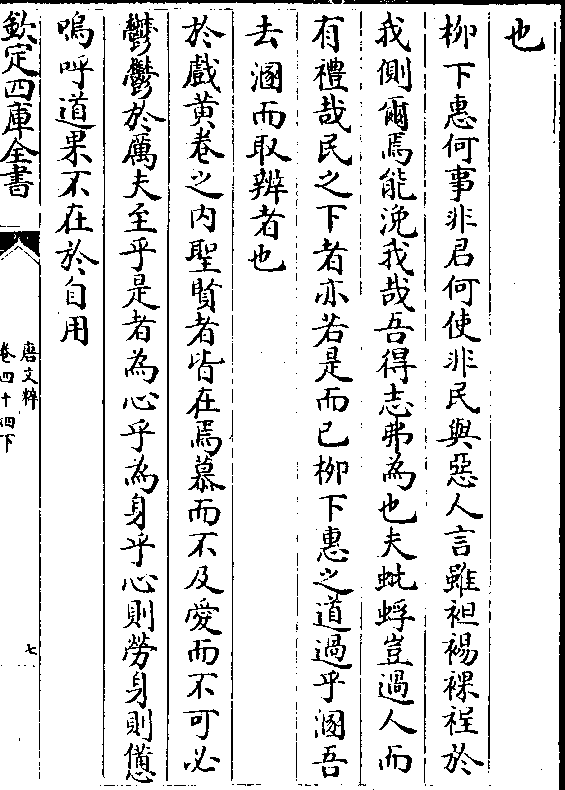 也
柳下惠何事非君何使非民與惡人言雖袒裼裸裎於
我側爾焉能浼我哉吾得志弗為也夫蚍蜉豈過人而
有禮哉民之下者亦若是而已柳下惠之道過乎溷吾
去溷而取辨者也
於戲黃卷之内聖賢者皆在焉慕而不及愛而不可必
鬱鬱於厲夫至乎是者為心乎為身乎心則勞身則憊
嗚呼道果不在於自用
欽定四庫全書
唐文粹
卷四十四下
七